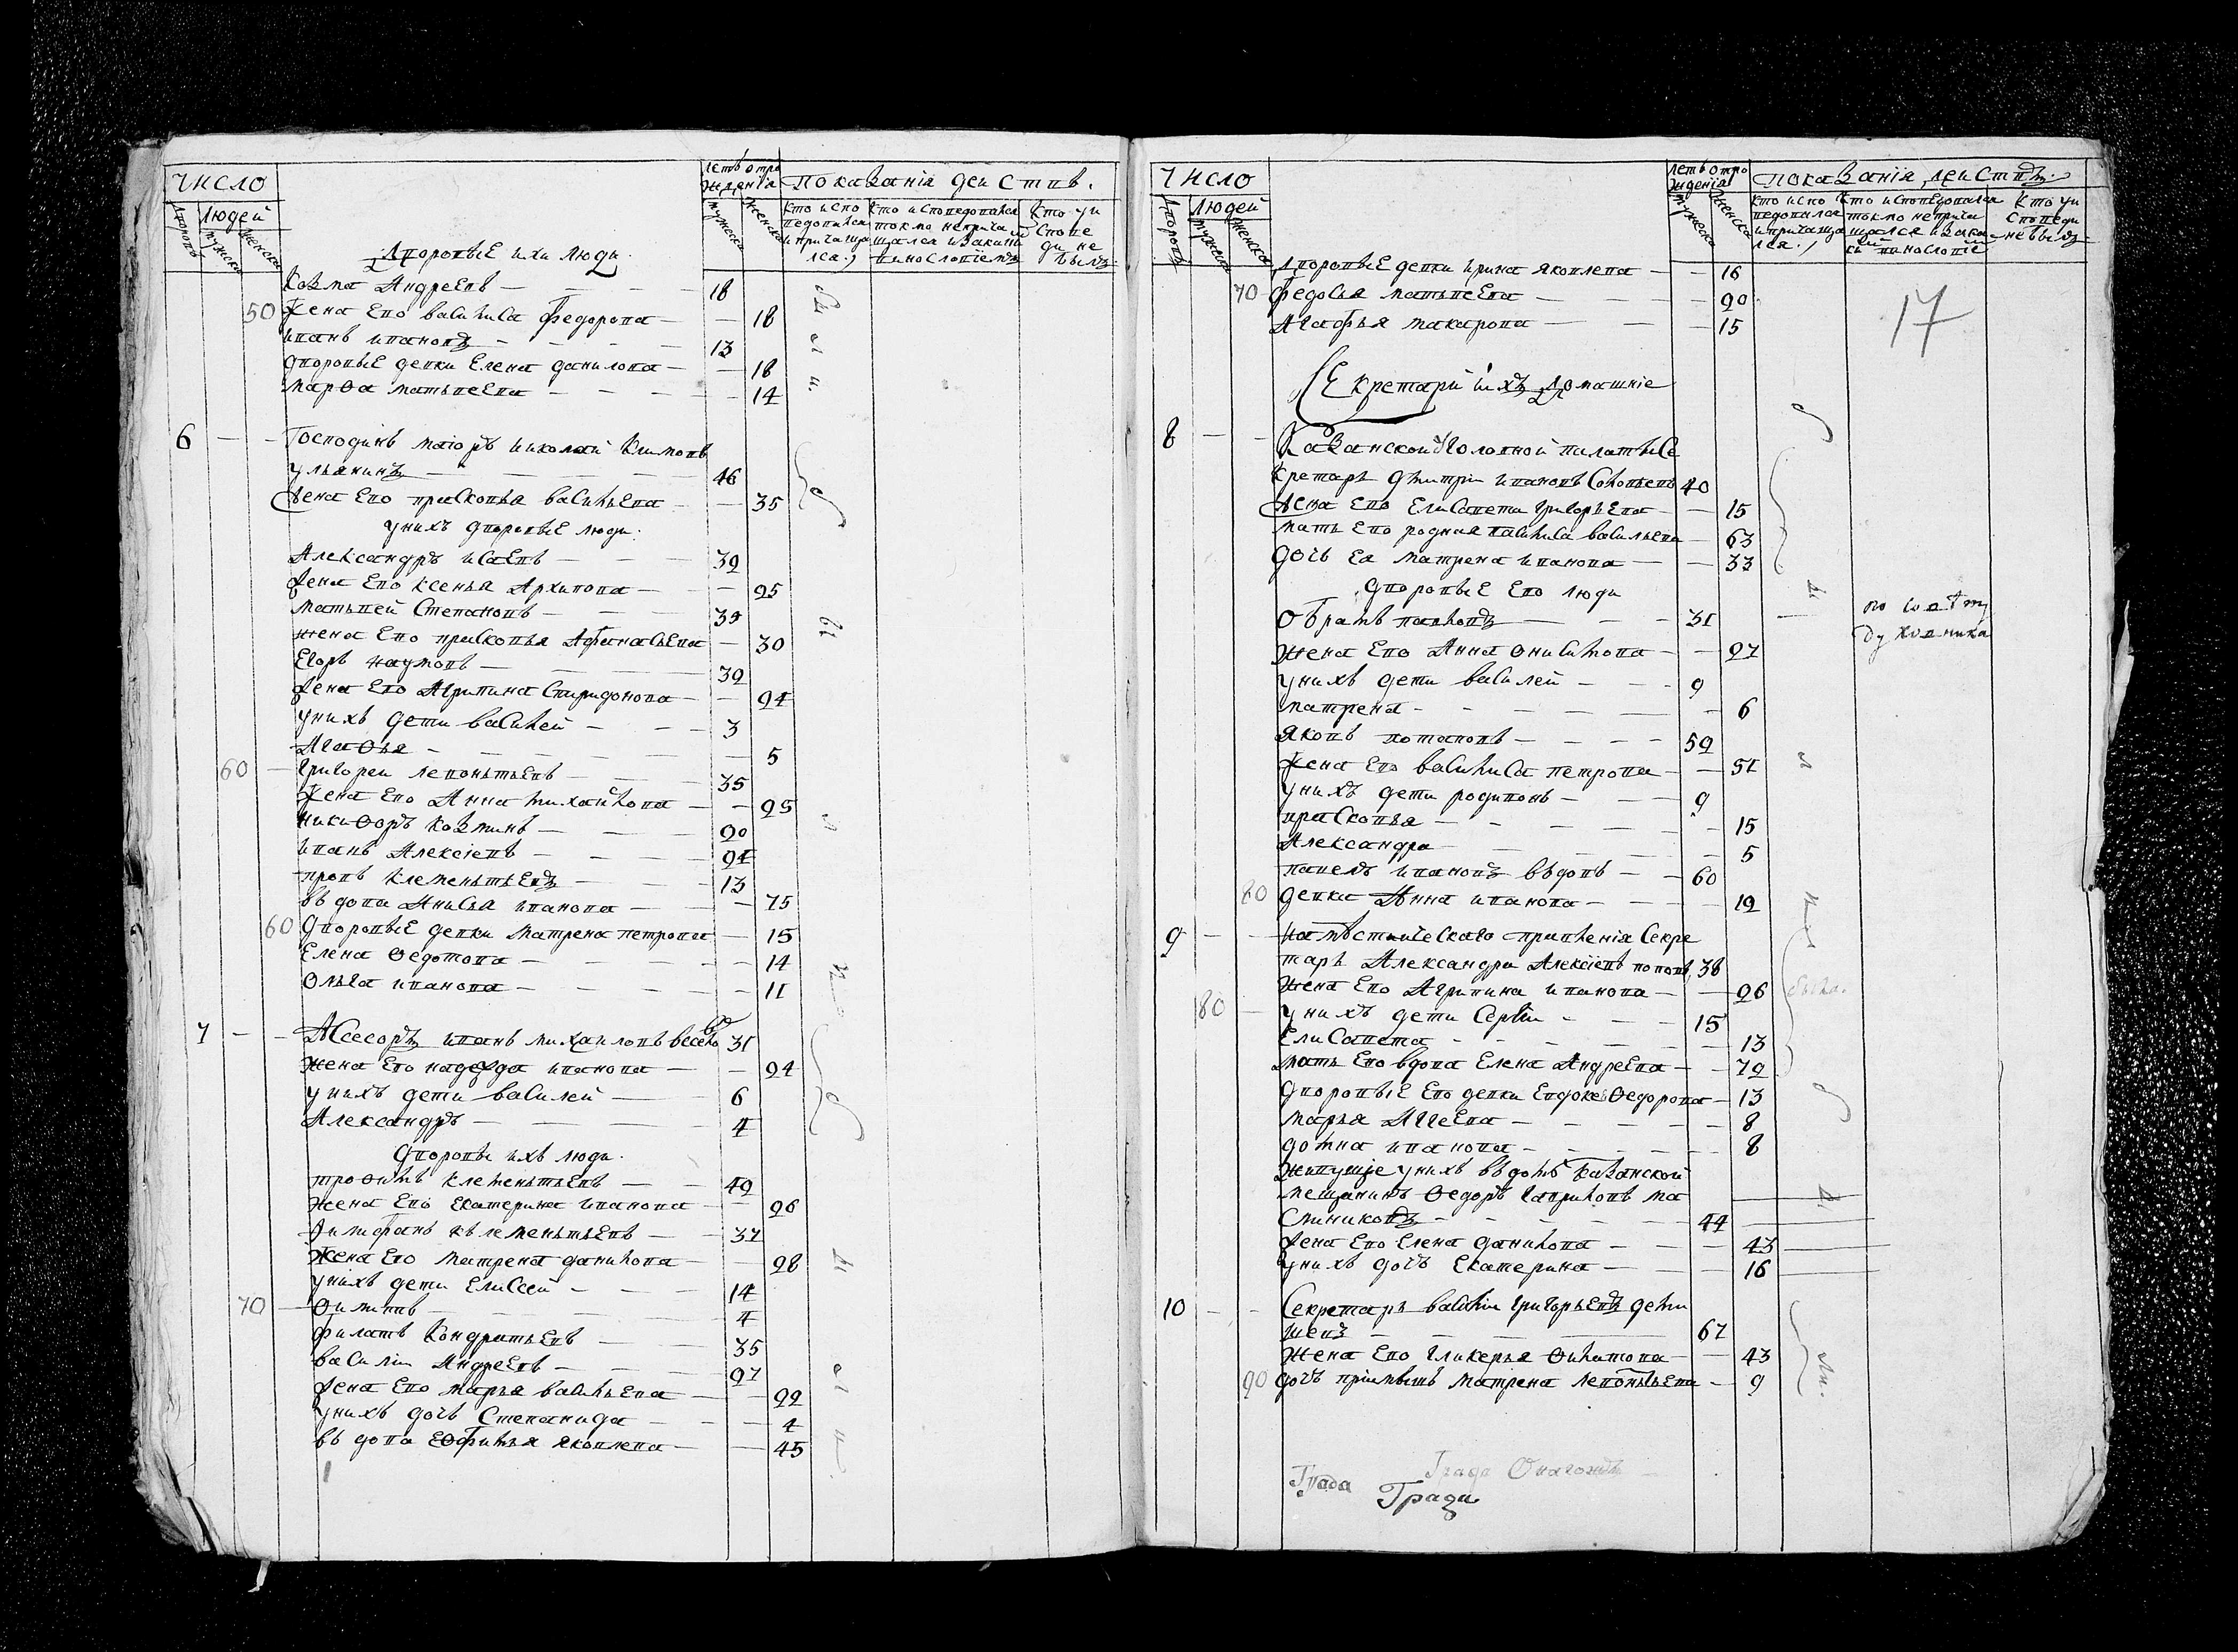 число
людей
дворовъ
мужеска
женска
летъ отро
ждения
мужеска
женска
показания действъ.
кто испо
ведовался
и причаща
лся.
кто исповедовался
токмо неприча
щался и за какимъ
винословиемъ
кто у и
спове
ди не
былъ
дворовые ихъ люди.
козма андреевъ — 18
50 жена ево василиса федорова — 18
иванъ ивановъ — 13
дворовые девки елена данилова — 18
марѳа матвеева — 14
6 — — господинъ маиоръ николай климовъ
ульянинъ — 46
жена ево прасковья васильева — 35
у нихъ дворовые люди.
александръ исаевъ — 32
жена ево ксенья архипова — 25
матвей степановъ — 35
жена ево прасковья афанасьева — 30
егоръ наумовъ — 32
жена ево агрипина спиридонова — 24
у нихъ дети василей — 3
агаѳья — 5
60 григореи левонтьевъ — 35
жена ево анна михайлова — 25
никиѳоръ козминъ — 20
иванъ алексиевъ — 24
провъ клементьевъ — 13
вьдова анисья иванова — 75
60 дворовые девки матрена петрова — 15
елена ѳедотова — 14
ольга иванова — 11
7 — — асесоръ иванъ михаиловъ 31
жена ево надежда иванова — 24
у нихъ дети василей — 6
александръ — 4
дворовы ихъ люди.
троѳимъ клементьевъ — 42
жена ево екатерина иванова — 26
клементьевъ — 37
жена ево матрена данилова — 28
у нихъ дети елисей — 14
70 — 4
филатъ кондратьевъ — 35
василии андреевъ — 27
жена ево марья васильева — 22
у нихъ дочь степанида — 4
вьдова еѳимья яковлева — 45
число
людей
дворовъ
мужеска
женска
летъ отро
ждения
мужеска
женска
показания действъ.
кто испо
ведовался
и причаща
лся.
кто исповедовался
токмо неприча
щался и за ка
кимъ винословие
кто у и
споведи
небылъ
дворовые девки ирина яковлева — 16
70 федосья матвеева — 20
агафья макарова — 15
17
секретари и ихъ домашние
8 — — казанской уголовной палаты се
кретарь дмитрии ивановъ 40
жена ево елисавета григорьева — 15
мать ево родная василиса васильева — 63
дочь ея матрена иванова — 33
дворовые ево люди
павловъ — 31
по совету
духовника
жена ево анна онисимова — 27
у нихъ дети василей — 9
матрена — 6
яковъ потаповъ — 52
жена ево василиса петрова — 51
у нихъ дети родивонъ — 9
прасковья — 15
александра — 5
павелъ ивановъ вьдовъ — 60
80 девка анна иванова — 12
9 — — наместническаго правления секре
тарь александра алексиевъ поповъ 38
жена ево агрипина иванова — 26
80 у нихъ дети сергии — 15
елисавета — 13
мать ево вдова елена андреева — 72
дворовые ево девки евдокея ѳедорова — 13
марья аггеева — 8
домна иванова — 8
живущие у нихъ въ доме казанской
мещанинъ ѳедоръ гавриловъ ма
слениковъ — 44
жена ево елена данилова — 43
у нихъ дочь екатерина — 16
10 — — секретарь василии григорьевъ
67
жена ево гликерья ѳилипова — 43
90 дочь приимышъ матрена левонтьева — 9
града
града
града